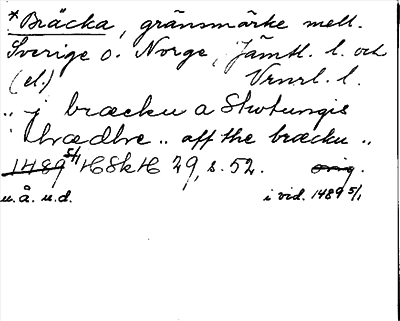 *Bräcka, gränsmärke mell.
Sverige o. Norge, Jämtl. l. och
(el.) Vrml. l.
„ i bræcku a Stwtungis
brædhe „ aff the bræcku „
1489 5/1 HSkH 29, s. 52. orig.
u. å. u. d. i vid. 1489 5/1